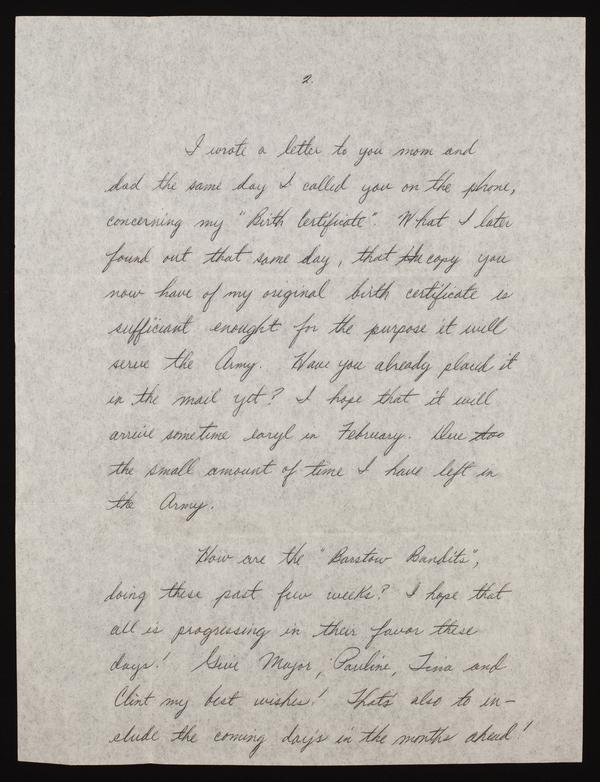 2.
I wrote a letter to you mom and
dad the same day I called you on the phone,
concerning my "Birth Certificate". What I later
found out that same day, that the copy you
now have of my original birth certificate is
sufficiant enought for the purpose it will
serve the Army. Have you already placed it
in the mail yet? I hope that it will
arrive sometime earyl in February. Due too
the small amount of time I have left in
the Army.
How are the "Barstow Bandits",
doing these past few weeks? I hope that
all is progressing in their favor these
days! Give Major, Pauline, Tina and
Clint my best wishes! That's also to in-
clude the coming day's in the months ahead!